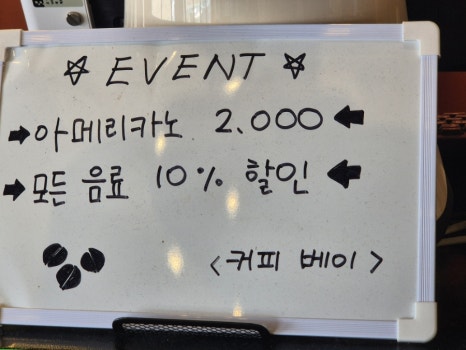 ☆ EVENT ☆
➡아메리카노 2.000⬅
➡모든 음료 10% 할인⬅
<커피 베이>